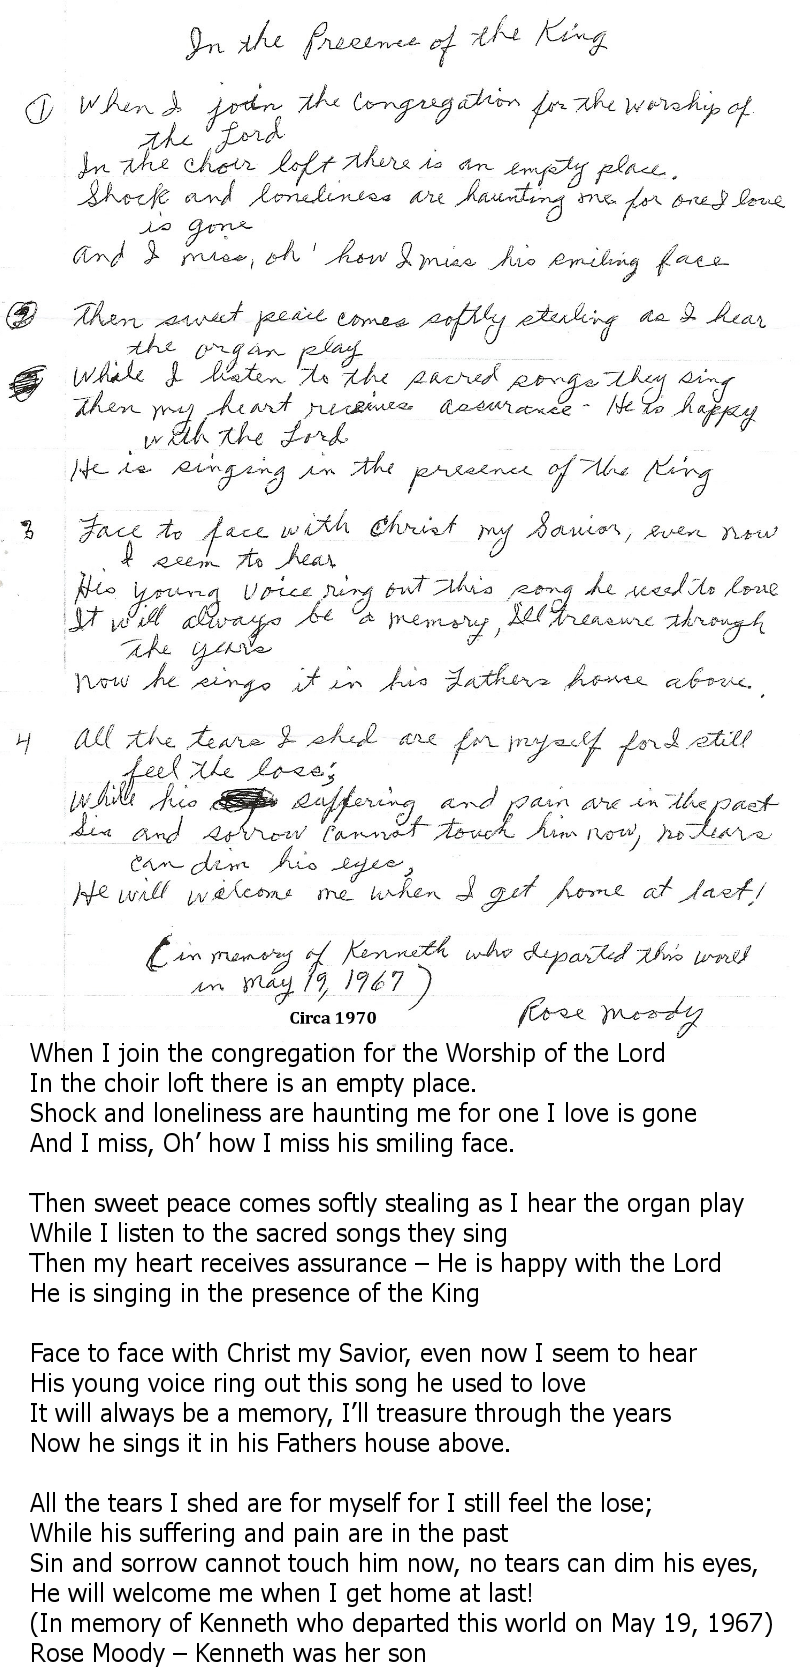 In the Presence of the King
① When I join the congregation for the worship of
the Lord
In the choir loft there is an empty place.
Shock and loneliness are haunting me for one I love
is gone
And I miss, oh' how I miss his smiling face
② Then sweet peace comes softly stealing as I hear
the organ play
While I listen to the sacred songs they sing
Then my heart receives assurance - He is happy
with the Lord
He is singing in the presence of the King
3 Face to face with Christ my Savior, even now
I seem to hear
His young voice ring out this song he used to love
It will always be a memory, I'll treasure through
the years
Now he sings it in his Fathers house above.
4 All the tears I shed are for myself for I still
feel the lose;
While his suffering and pain are in the past
Sin and sorrow cannot touch him now, no tears
can dim his eyes,
He will welcome me when I get home at last!
(in memory of Kenneth who departed this world
in May 19, 1967)
Circa 1970 Rose Moody
When I join the congregation for the Worship of the Lord
In the choir loft there is an empty place.
Shock and loneliness are haunting me for one I love is gone
And I miss, Oh’ how I miss his smiling face.
Then sweet peace comes softly stealing as I hear the organ play
While I listen to the sacred songs they sing
Then my heart receives assurance – He is happy with the Lord
He is singing in the presence of the King
Face to face with Christ my Savior, even now I seem to hear
His young voice ring out this song he used to love
It will always be a memory, I’ll treasure through the years
Now he sings it in his Fathers house above.
All the tears I shed are for myself for I still feel the lose;
While his suffering and pain are in the past
Sin and sorrow cannot touch him now, no tears can dim his eyes,
He will welcome me when I get home at last!
(In memory of Kenneth who departed this world on May 19, 1967)
Rose Moody – Kenneth was her son